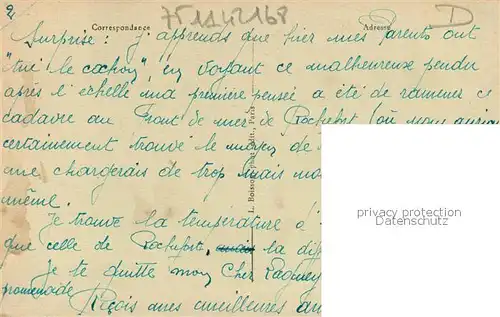 2
75111/2168
D
Correspondance
Adresse
Surprise : J'apprends que hier mes Parents ont
"tué le cochon", en voyant ce malheureux pendu
après l'échelle ma première pensée a été de ramener ce
cadavre au Front de mer de Rochefort (où nous
certainement trouvé le moyen de
me chargerais de trop mais
même.
Je trouve la température à
que celle de Rochefort, mais la
Je te quitte mon Cher
promenade
Reçois mes meilleures
L. Boisson, phot.-édit., Paris
privacy protection
Datenschutz